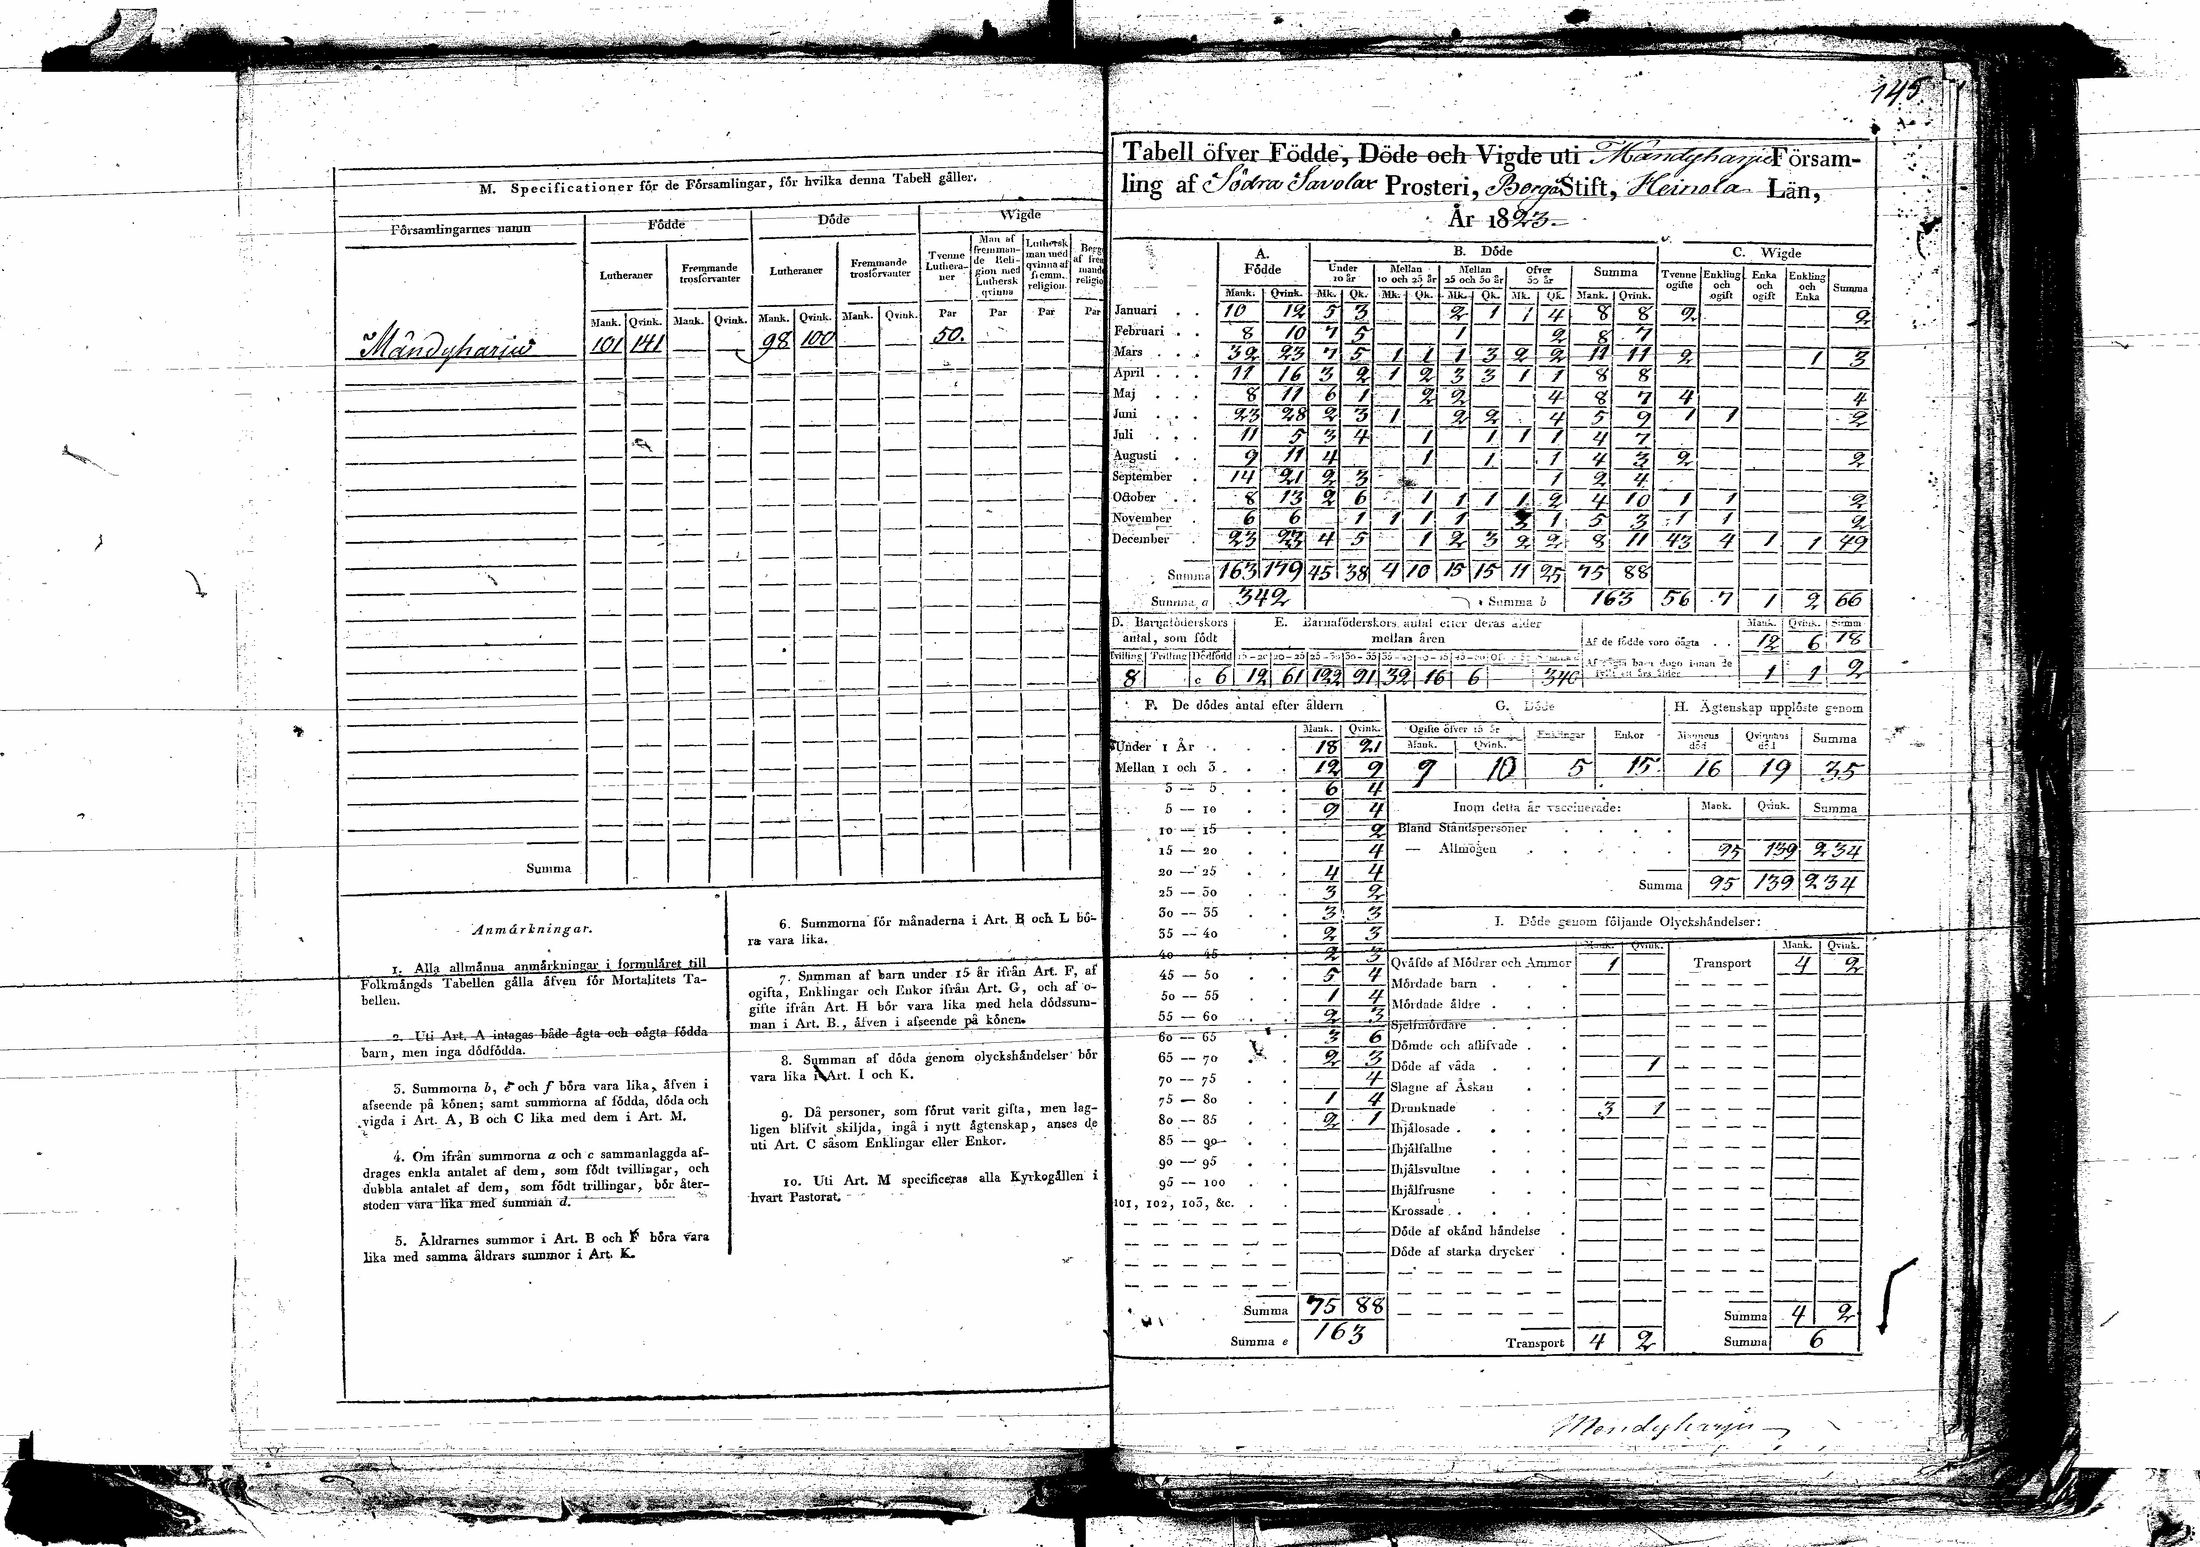 M. Specificationer för de Församlingar, för hvilka denna Tabell gäller.
Församlingarnes namn Födde Döde Wigde
Lutheraner Fremmande trosförvanter Lutheraner Fremmande trosförvanter Tvenne Lutheraner Man af fremmande Religion med Luthersk qvinna Luthersk man med qvinna af fremm. religion.
Mank. Qvink. Mank. Qvink. Mank. Qvink. Mank. Qvink. Par Par Par Par
Mändyharju 101 141 98 100 50.
Summa
Anmärkningar.
1. Alla allmänna anmärkningar i formuläret till
Folkmängds Tabellen gälla äfven för Mortalitets Ta-
bellen.
2. Uti Art. A intagas både ägta och oägta födda
barn, men inga dödfödda.
3. Summorna b, e och f böra vara lika, äfven i
afseende på könen; samt summorna af födda, döda och
vigda i Art. A, B och C lika med dem i Art. M.
4. Om ifrån summorna a och c sammanlaggda af-
drages enkla antalet af dem, som födt tvillingar, och
dubbla antalet af dem, som födt trillingar, bör åter-
stoden vara lika med summan d.
5. Åldrarnes summor i Art. B och F böra vara
lika med samma åldrars summor i Art. K.
6. Summorna för månaderna i Art. B och L bö-
ra vara lika.
7. Summan af barn under 15 år ifrån Art. F, af
ogifta, Enklingar och Enkor ifrån Art. G, och af o-
gifte ifrån Art. H bör vara lika med hela dödssum-
man i Art. B., äfven i afseende på könen.
8. Summan af döda genom olyckshändelser bör
vara lika i Art. I och K.
9. Då personer, som förut varit gifta, men lag-
ligen blifvit skiljda, ingå i nytt ägtenskap, anses de
uti Art. C såsom Enklingar eller Enkor.
10. Uti Art. M specificeras alla Kyrkogällen i
hvart Pastorat.
145
Tabell öfver Födde, Döde och Vigde uti Mändyharju Försam-
ling af Södra Savolax Prosteri, Borgå Stift, Heinola Län,
År 1823.
A. Födde B. Döde C. Wigde
Under 10 år Mellan 10 och 25 år Mellan 25 och 50 år Öfver 50 år Summa Tvenne ogifte Enkling och ogift Enka och ogift Enkling och Enka Summa
Mank. Qvink. Mk. Qk. Mk. Qk. Mk. Qk. Mk. Qk. Mank. Qvink.
Januari 10 12 5 3 2 1 1 4 8 8 2 2
Februari 8 10 7 5 1 2 8 7
Mars 32 23 7 5 1 1 1 3 2 2 11 11 2 1 3
April 11 16 3 2 1 2 3 3 1 1 8 8
Maj 8 11 6 1 2 2 4 8 7 4 4
Juni 23 28 2 3 1 2 2 4 5 9 1 1 2
Juli 11 5 3 4 1 1 1 1 4 7
Augusti 9 11 4 1 1 1 4 3 2 2
September 14 21 2 3 1 2 4
October 8 13 2 6 1 1 1 1 2 4 10 1 1 2
November 6 6 1 1 1 1 3 1 5 3 1 1 2
December 23 23 4 5 1 2 3 2 2 8 11 43 4 1 1 49
Summa 163 179 45 38 4 10 15 15 11 25 75 88
Summa a 342 Summa b 163 56 7 1 2 66
D. Barnaföderskors antal, som födt
Tvilling Trilling Dödfödd
8 c 6
E. Barnaföderskors antal efter deras ålder mellan åren
12 61 122 91 32 16 6 340
Mank. Qvink. Summ
Af de födde voro oägta 12 6 18
1 1 2
F. De dödes antal efter åldern
Mank. Qvink.
Under 1 År 18 21
Mellan 1 och 3 12 9
3 — 5 6 4
5 — 10 9 4
10 — 15 2
15 — 20 4
20 — 25 4 4
25 — 30 3 2
30 — 35 3 3
35 — 40 2 3
40 — 45 2 3
45 — 50 5 4
50 — 55 1 4
55 — 60 2 3
60 — 65 3 6
65 — 70 2 3
70 — 75 4
75 — 80 1 4
80 — 85 2 1
85 — 90
90 — 95
95 — 100
101, 102, 103, &c.
Summa 75 88
Summa e 163
G. Döde
Ogifte öfver 15 år Enklingar Enkor
Mank. Qvink.
9 10 5 15
H. Ägtenskap upplöste genom
Mannens död Qvinnans död Summa
16 19 35
Inom detta år vaccinerade: Mank. Qvink. Summa
Bland Ståndspersoner
— Allmogen 95 139 234
Summa 95 139 234
I. Döde genom följande Olyckshändelser:
Mank. Qvink. Mank. Qvink.
Qväfde af Mödrar och Ammor 1 Transport 4 2
Mördade barn
Mördade äldre
Sjelfmördare
Dömde och aflifvade
Döde af våda 1
Slagne af Åskan
Drunknade 3 1
Ihjälosade
Ihjälfallne
Ihjälsvultne
Ihjälfrusne
Krossade
Döde af okänd händelse
Döde af starka drycker
Summa 4 2
Transport 4 2 Summa 6
Mendyharju